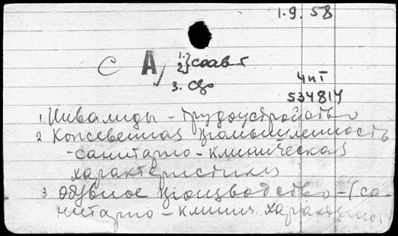 1.9.58
С А 1. } соавт
2.
3. сво
ЧПТ
534814
1. Инвалиды - трудоустройство
2 Кожевенная промышленность
- санитарно - клиническая
характеристика
3 Обувное производство - (са-
нитарно - клинич. характеристика